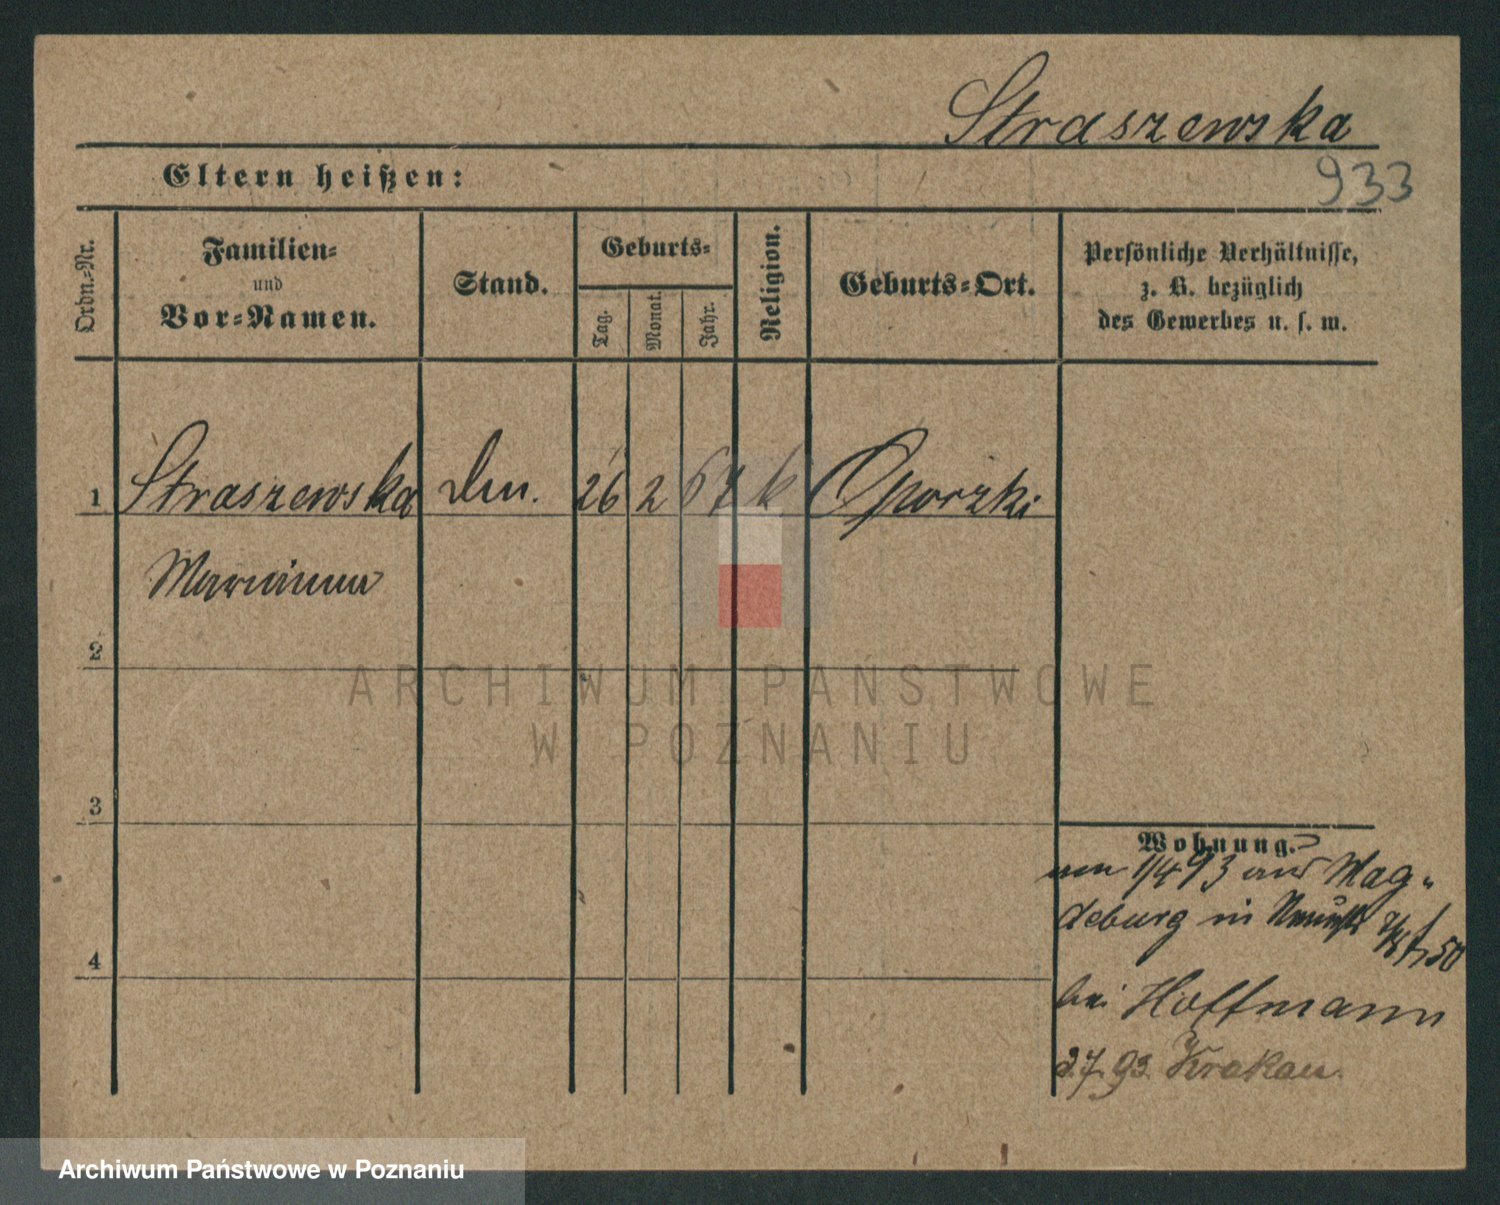 Straszewska
933
Eltern heißen:
Ordn.-Nr.
Familien-
und
Vor-Namen.
Stand.
Geburts-
Tag.
Monat.
Jahr.
Religion.
Geburts-Ort.
Persönliche Verhältnisse,
z. B. bezüglich
des Gewerbes u. s. w.
1 Straszewska 26 2 67 k Oporzki
Marianna
2
3
4
ARCHIWUM PAŃSTWOWE
W POZNANIU
Wohnung.
1/4 93 aus Mag-
deburg in 50
bei Hoffmann
2.7.93. Krakau.
Archiwum Państwowe w Poznaniu